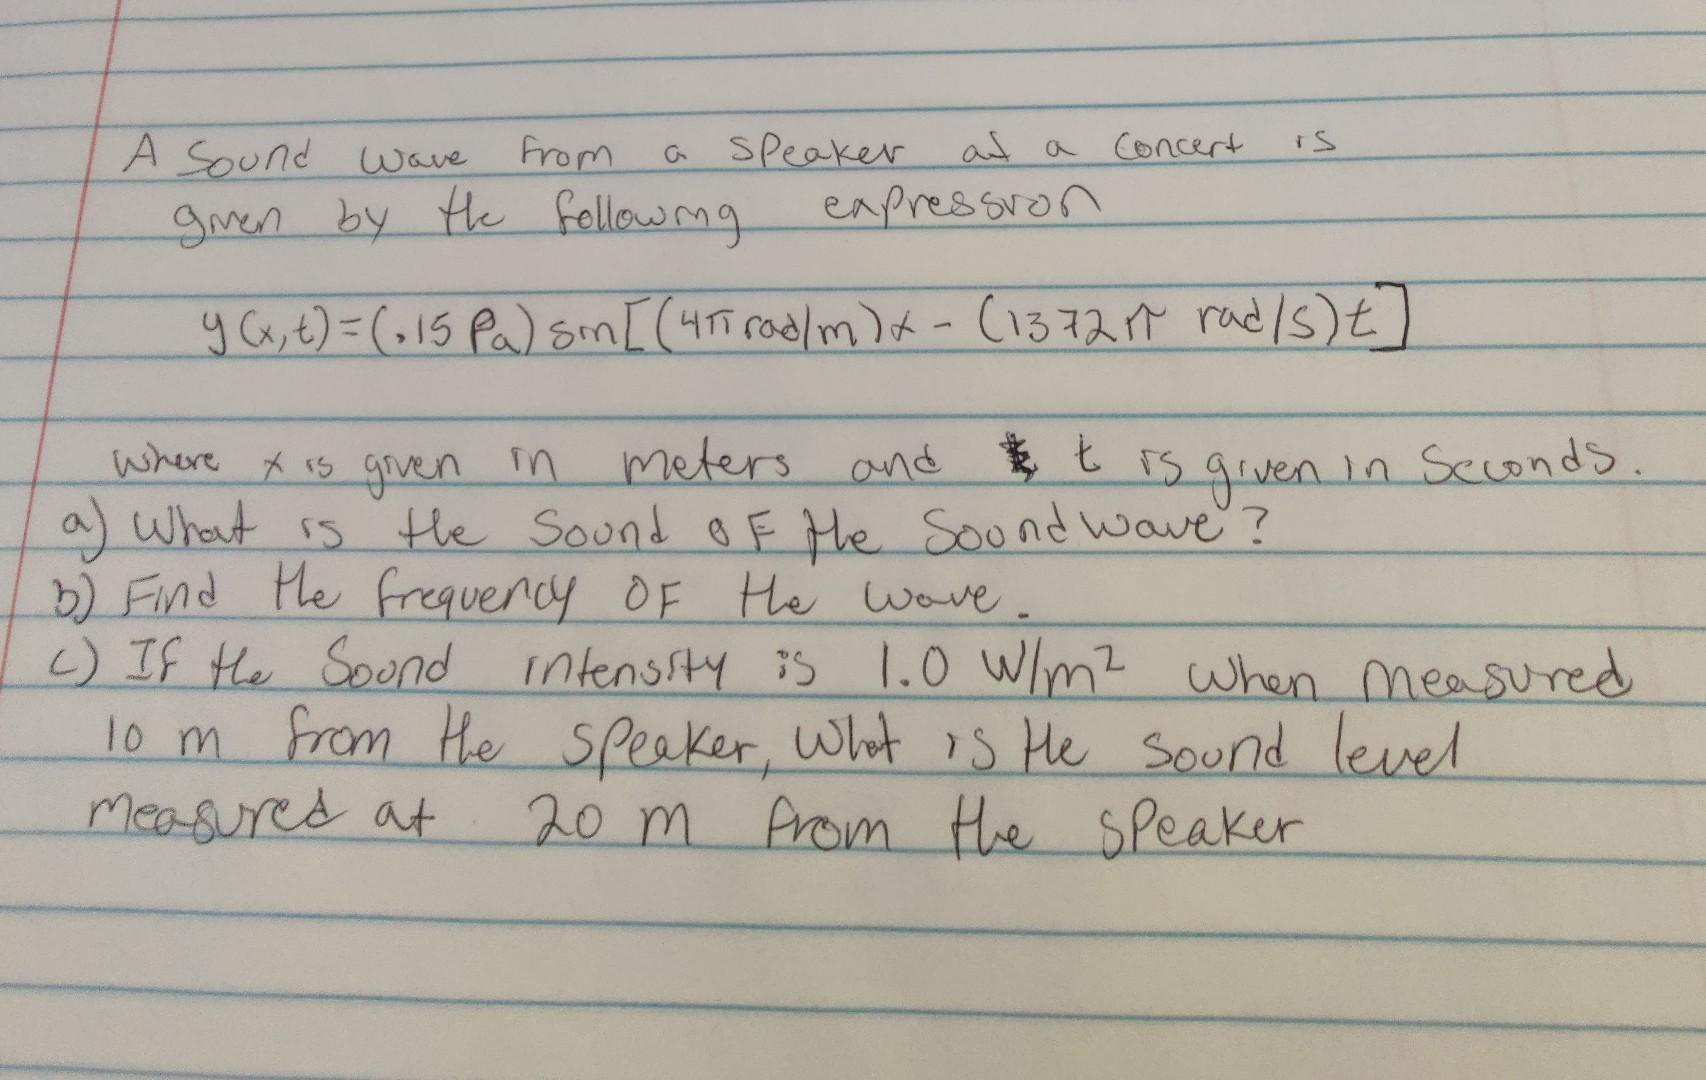 A Sound wave From a Speaker at a Concert is
given by the following expression
y(x,t)=(.15 Pa) sin[(4π rad/m)x - (1372π rad/s)t]
where x is given in meters and t is given in Seconds.
a) What is the Sound OF the Soundwave?
b) Find the frequency OF the wave.
c) If the Sound intensity is 1.0 W/m² when measured
10 m from the speaker, what is the sound level
measured at 20 m from the speaker